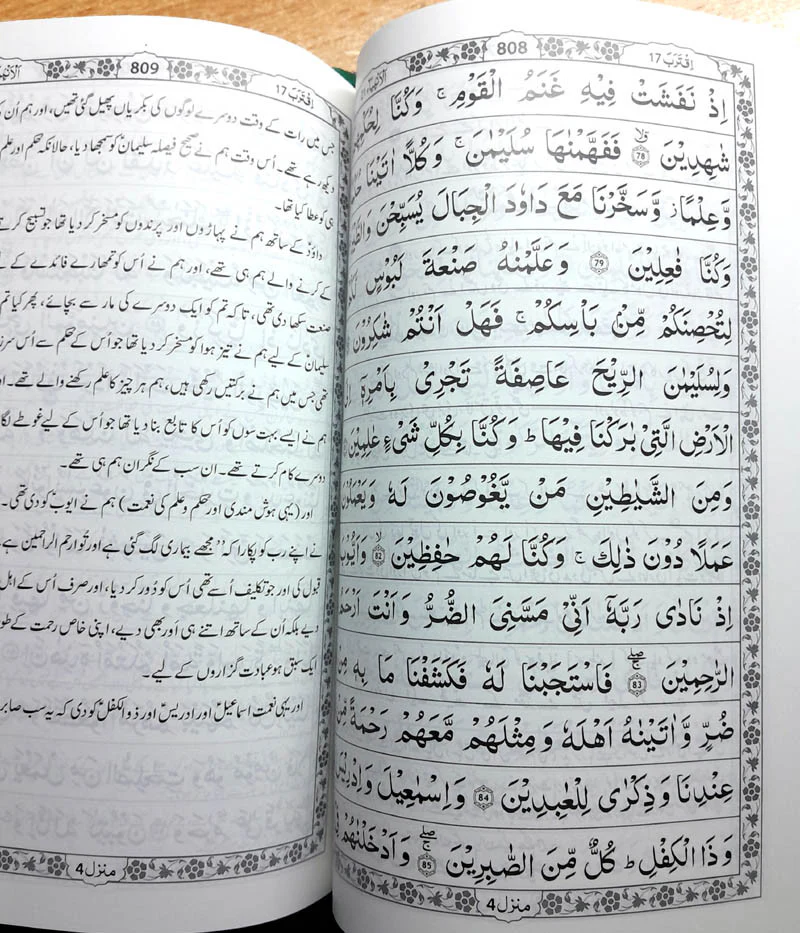 اِقْتَرَبَ 17
808
اِذْ نَفَشَتْ فِيْهِ غَنَمُ الْقَوْمِ ۚ وَكُنَّا
شٰهِدِيْنَ 78 فَفَهَّمْنٰهَا سُلَيْمٰنَ ۚ وَكُلًّا اٰتَيْنَا
وَّعِلْمًا ۡ وَّسَخَّرْنَا مَعَ دَاوٗدَ الْجِبَالَ يُسَبِّحْنَ
وَكُنَّا فٰعِلِيْنَ 79 وَعَلَّمْنٰهُ صَنْعَةَ لَبُوْسٍ
لِتُحْصِنَكُمْ مِّنْۢ بَاْسِكُمْ ۚ فَهَلْ اَنْتُمْ شٰكِرُوْنَ
وَلِسُلَيْمٰنَ الرِّيْحَ عَاصِفَةً تَجْرِيْ بِاَمْرِهٖٓ
الْاَرْضِ الَّتِيْ بٰرَكْنَا فِيْهَا ؕ وَكُنَّا بِكُلِّ شَيْءٍ عٰلِمِيْنَ
وَمِنَ الشَّيٰطِيْنِ مَنْ يَّغُوْصُوْنَ لَهٗ وَيَعْمَلُوْنَ
عَمَلًا دُوْنَ ذٰلِكَ ۚ وَكُنَّا لَهُمْ حٰفِظِيْنَ 82
اِذْ نَادٰى رَبَّهٗٓ اَنِّيْ مَسَّنِيَ الضُّرُّ وَاَنْتَ
الرّٰحِمِيْنَ 83 فَاسْتَجَبْنَا لَهٗ فَكَشَفْنَا مَا بِهٖ مِنْ
ضُرٍّ وَّاٰتَيْنٰهُ اَهْلَهٗ وَمِثْلَهُمْ مَّعَهُمْ رَحْمَةً مِّنْ
عِنْدِنَا وَذِكْرٰى لِلْعٰبِدِيْنَ 84 وَاِسْمٰعِيْلَ وَاِدْرِيْسَ
وَذَا الْكِفْلِ ؕ كُلٌّ مِّنَ الصّٰبِرِيْنَ 85 وَاَدْخَلْنٰهُمْ
منزل 4
اِقْتَرَبَ 17
809
جس میں رات کے وقت دوسرے لوگوں کی بکریاں پھیل گئی تھیں، اور ہم اُن
دیکھ رہے تھے۔ اُس وقت ہم نے صحیح فیصلہ سلیمانؑ کو سمجھا دیا، حالانکہ حکم اور علم
ہی کو عطا کیا تھا۔
داؤدؑ کے ساتھ ہم نے پہاڑوں اور پرندوں کو مسخر کر دیا تھا جو تسبیح کرتے
کے کرنے والے ہم ہی تھے، اور ہم نے اُس کو تمھارے فائدے کے
صنعت سکھا دی تھی، تاکہ تم کو ایک دوسرے کی مار سے بچائے، پھر کیا تم
سلیمانؑ کے لیے ہم نے تیز ہوا کو مسخر کر دیا تھا جو اُس کے حکم سے اُس
تھی جس میں ہم نے برکتیں رکھی ہیں، ہم ہر چیز کا علم رکھنے والے تھے۔
ہم نے ایسے بہت سوں کو اُس کا تابع بنا دیا تھا جو اُس کے لیے غوطے
دوسرے کام کرتے تھے۔ ان سب کے نگران ہم ہی تھے۔
اور (یہی ہوش مندی اور حکم و علم کی نعمت) ہم نے ایوبؑ کو دی تھی۔
نے اپنے رب کو پکارا کہ "مجھے بیماری لگ گئی ہے اور تُو ارحم الراحمین ہے
قبول کی اور جو تکلیف اُسے تھی اُس کو دُور کر دیا، اور صرف اُس کے اہل
دیے بلکہ اُن کے ساتھ اتنے ہی اور بھی دیے، اپنی خاص رحمت کے
ایک سبق ہو عبادت گزاروں کے لیے۔
اور یہی نعمت اسماعیلؑ اور ادریسؑ اور ذوالکفلؑ کو دی کہ یہ سب
منزل 4